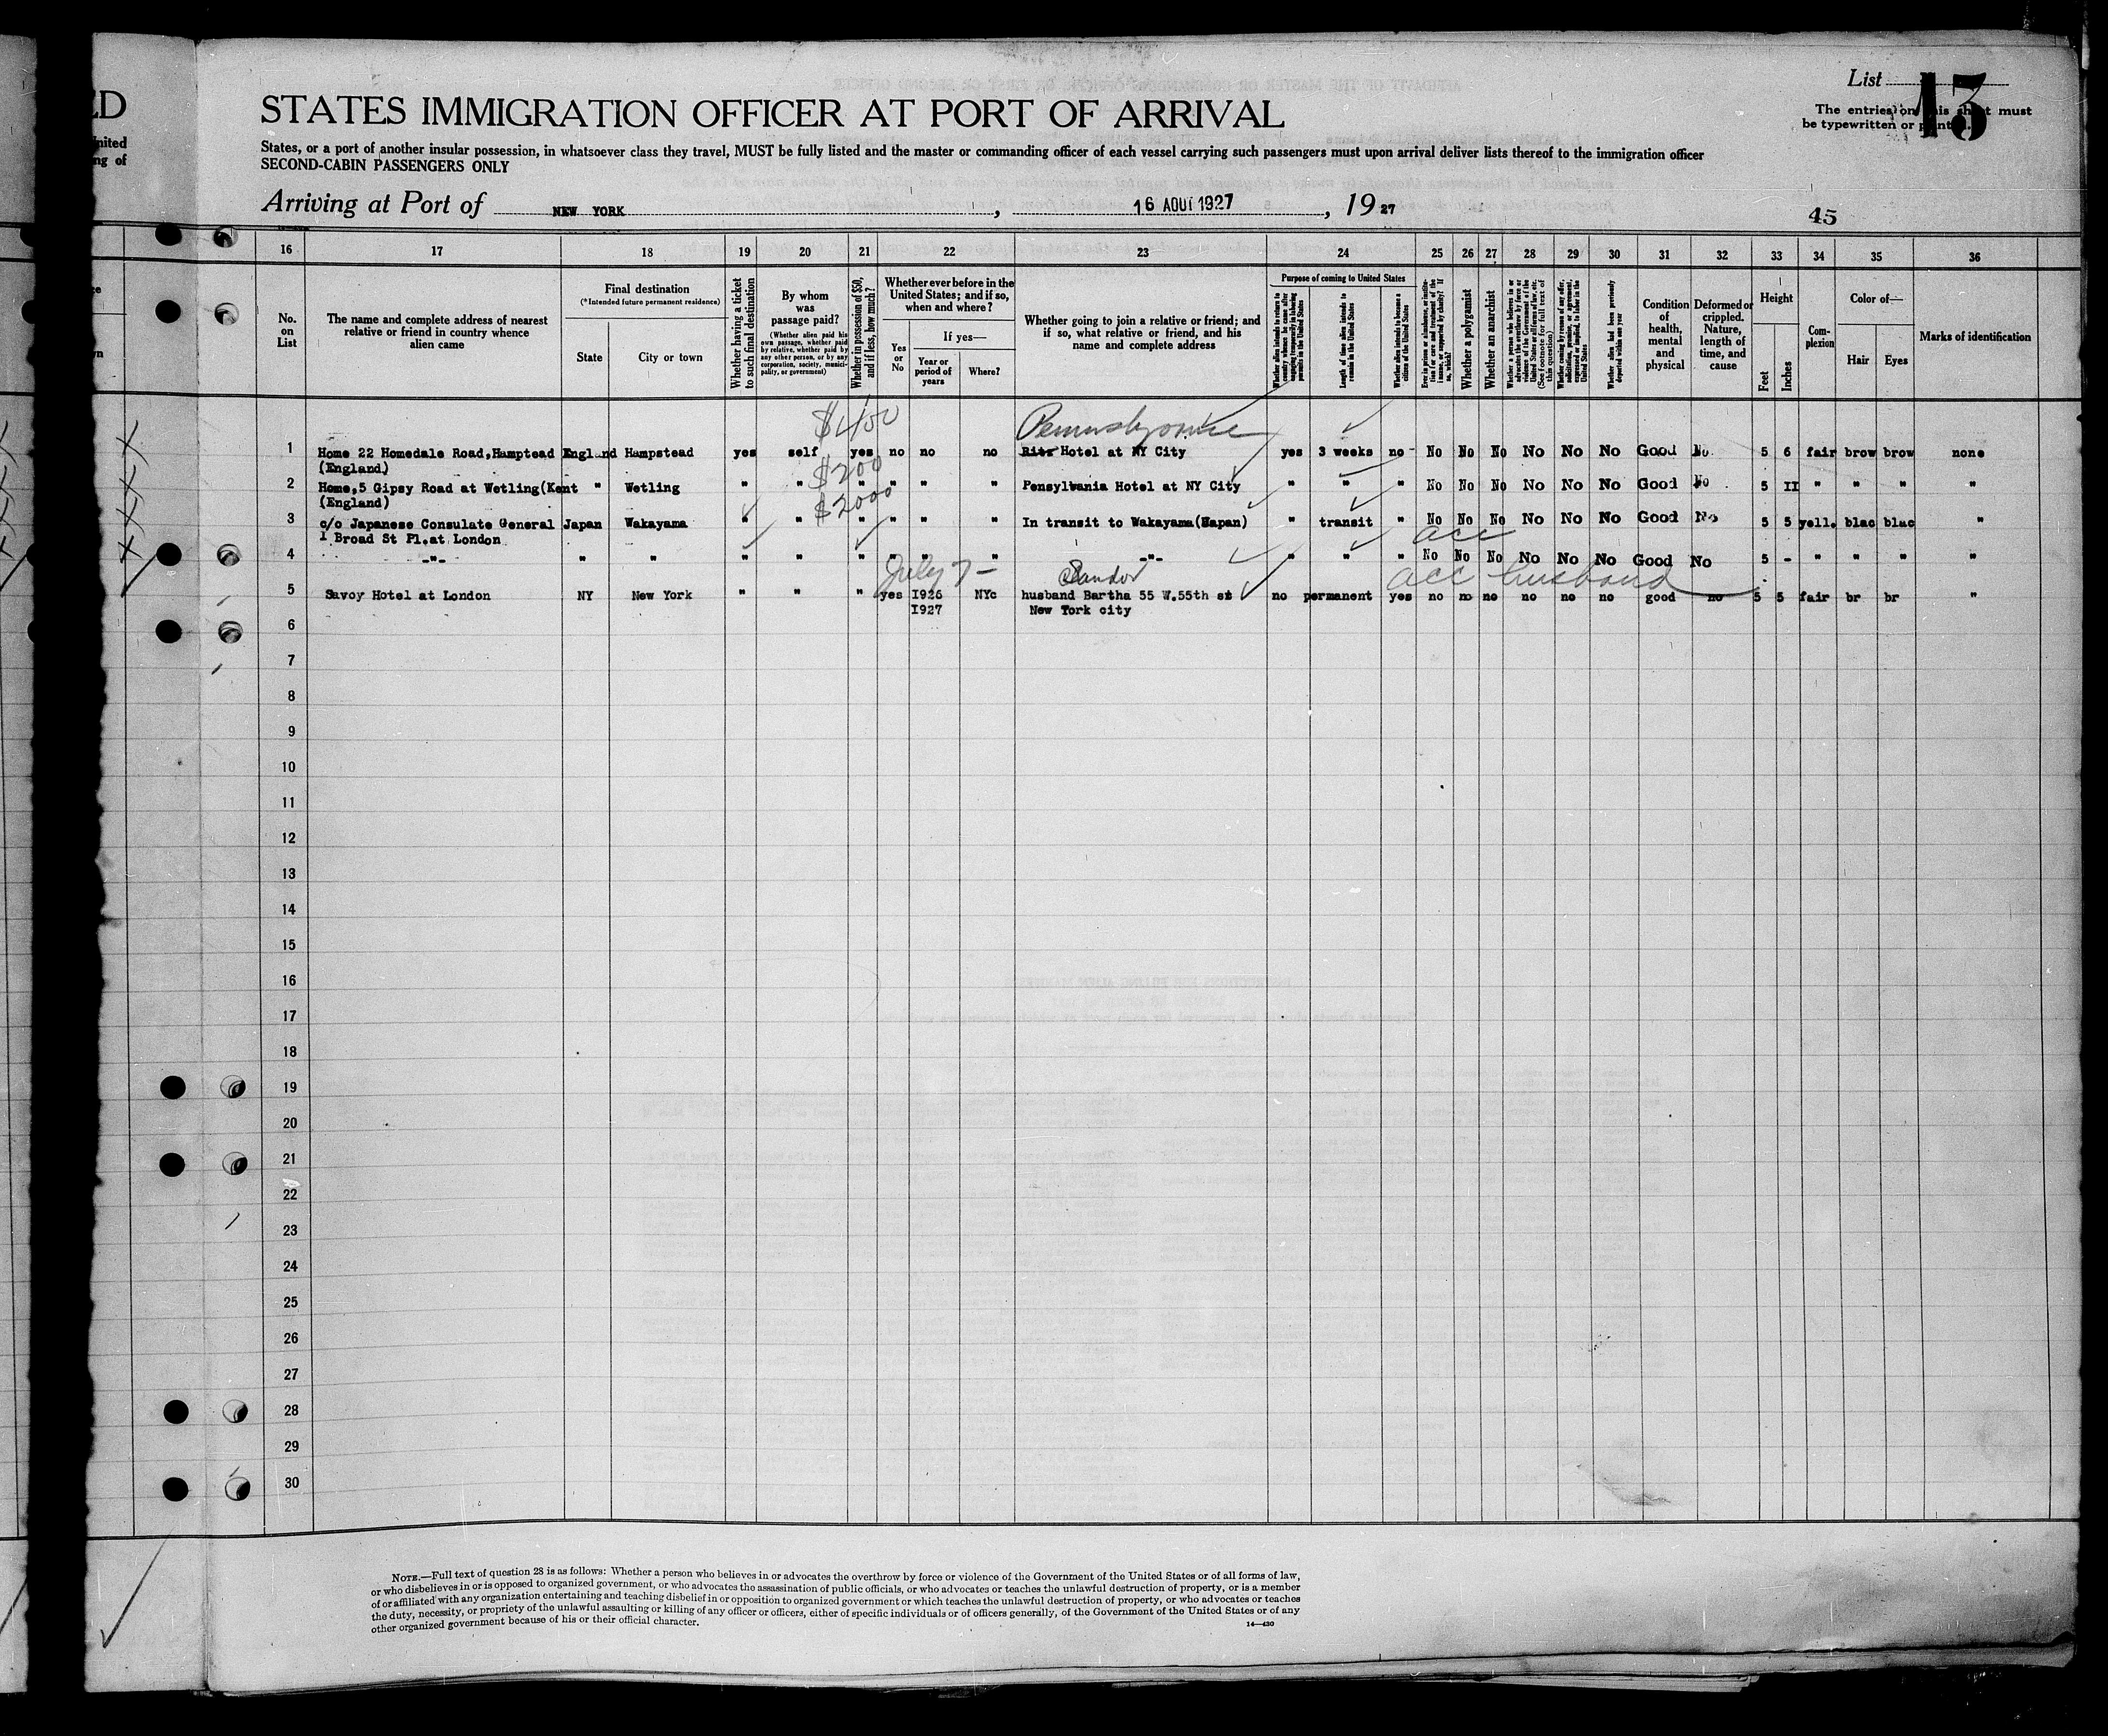 ED
nited
ng of
List
13
The entries on this sheet must
be typewritten or printed.
STATES IMMIGRATION OFFICER AT PORT OF ARRIVAL
States, or a port of another insular possession, in whatsoever class they travel, MUST be fully listed and the master or commanding officer of each vessel carrying such passengers must upon arrival deliver lists thereof to the immigration officer
SECOND-CABIN PASSENGERS ONLY
Arriving at Port of NEW YORK, 16 AOUT 1927, 19 27
45
16 17 18 19 20 21 22 23 24 25 26 27 28 29 30 31 32 33 34 35 36
No. on List
The name and complete address of nearest relative or friend in country whence alien came
Final destination
(*Intended future permanent residence)
State
City or town
Whether having a ticket to such final destination
By whom was passage paid?
(Whether alien paid his own passage, whether paid by relative, whether paid by any other person, or by any corporation, society, municipality, or government)
Whether in possession of $50, and if less, how much?
Whether ever before in the United States; and if so, when and where?
Yes or No
If yes—
Year or period of years
Where?
Whether going to join a relative or friend; and if so, what relative or friend, and his name and complete address
Purpose of coming to United States
Whether alien intends to return to country whence he came after engaging temporarily in laboring pursuits in the United States
Length of time alien intends to remain in the United States
Whether alien intends to become a citizen of the United States
Ever in prison or almshouse, or institution for care and treatment of the insane, or supported by charity? If so, which?
Whether a polygamist
Whether an anarchist
Whether a person who believes in or advocates the overthrow by force or violence of the Government of the United States or all forms of law, etc. (See footnote for full text of this question)
Whether coming by reason of any offer, solicitation, promise, or agreement, expressed or implied, to labor in the United States
Whether alien had been previously deported within one year
Condition of health, mental and physical
Deformed or crippled. Nature, length of time, and cause
Height
Feet
Inches
Complexion
Color of—
Hair
Eyes
Marks of identification
$400 Pennsylvania
1 Home 22 Homedale Road,Hamptead England Hampstead yes self yes no no no Ritz Hotel at NY City yes 3 weeks no No No No No No No Good No 5 6 fair brow brow none
(England) $200
2 Home,5 Gipsy Road at Wetling(Kent " Wetling " " " " " " Pensylvania Hotel at NY City " " " No No No No No No Good No 5 II " " " "
(England) $2000
3 c/o Japanese Consulate General Japan Wakayama " " " " " " In transit to Wakayama(Japan) " transit " No No No No No No Good No 5 5 yell. blac blac "
I Broad St Pl.at London acc
4 -"- " " " " " " " " -"- " " " No No No No No No Good No 5 - " " " "
July 7 - Sandor acc husband
5 Savoy Hotel at London NY New York " " " yes I926 NYc husband Bartha 55 W.55th st no permanent yes no no no no no no good no 5 5 fair br br "
I927 New York city
6
7
8
9
10
11
12
13
14
15
16
17
18
19
20
21
22
23
24
25
26
27
28
29
30
NOTE.—Full text of question 28 is as follows: Whether a person who believes in or advocates the overthrow by force or violence of the Government of the United States or of all forms of law,
or who disbelieves in or is opposed to organized government, or who advocates the assassination of public officials, or who advocates or teaches the unlawful destruction of property, or is a member
of or affiliated with any organization entertaining and teaching disbelief in or opposition to organized government or which teaches the unlawful destruction of property, or who advocates or teaches
the duty, necessity, or propriety of the unlawful assaulting or killing of any officer or officers, either of specific individuals or of officers generally, of the Government of the United States or of any
other organized government because of his or their official character.
14—430